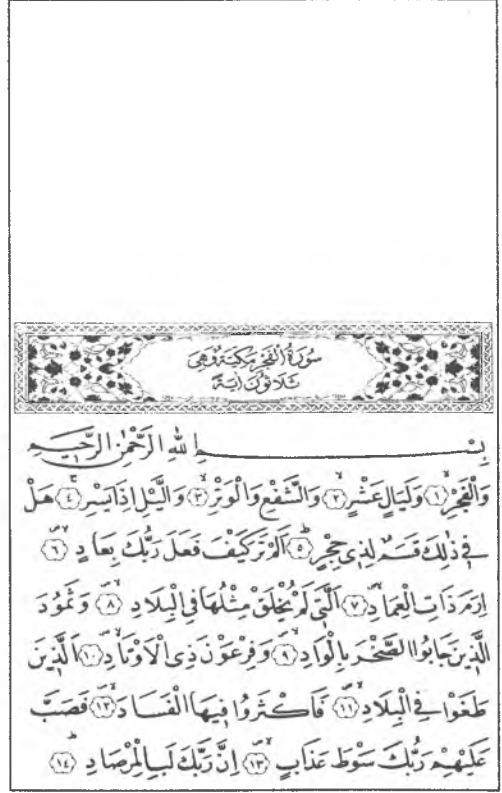 سُورَةُ الْفَجْرِ مَكِّيَّةٌ وَهِيَ
ثَلَاثُونَ اٰيَةً
بِسْمِ اللهِ الرَّحْمٰنِ الرَّحِيمِ
وَالْفَجْرِۙ ﴿١﴾ وَلَيَالٍ عَشْرٍۙ ﴿٢﴾ وَالشَّفْعِ وَالْوَتْرِۙ ﴿٣﴾ وَالَّيْلِ اِذَا يَسْرِۚ ﴿٤﴾ هَلْ
فِي ذٰلِكَ قَسَمٌ لِذِي حِجْرٍۜ ﴿٥﴾ اَلَمْ تَرَ كَيْفَ فَعَلَ رَبُّكَ بِعَادٍۙ ﴿٦﴾
اِرَمَ ذَاتِ الْعِمَادِۙ ﴿٧﴾ اَلَّتِي لَمْ يُخْلَقْ مِثْلُهَا فِي الْبِلَادِۙ ﴿٨﴾ وَثَمُودَ
الَّذِينَ جَابُوا الصَّخْرَ بِالْوَادِۙ ﴿٩﴾ وَفِرْعَوْنَ ذِي الْاَوْتَادِۙ ﴿١٠﴾ اَلَّذِينَ
طَغَوْا فِي الْبِلَادِۙ ﴿١١﴾ فَاَكْثَرُوا فِيهَا الْفَسَادَۙ ﴿١٢﴾ فَصَبَّ
عَلَيْهِمْ رَبُّكَ سَوْطَ عَذَابٍۙ ﴿١٣﴾ اِنَّ رَبَّكَ لَبِالْمِرْصَادِۜ ﴿١٤﴾